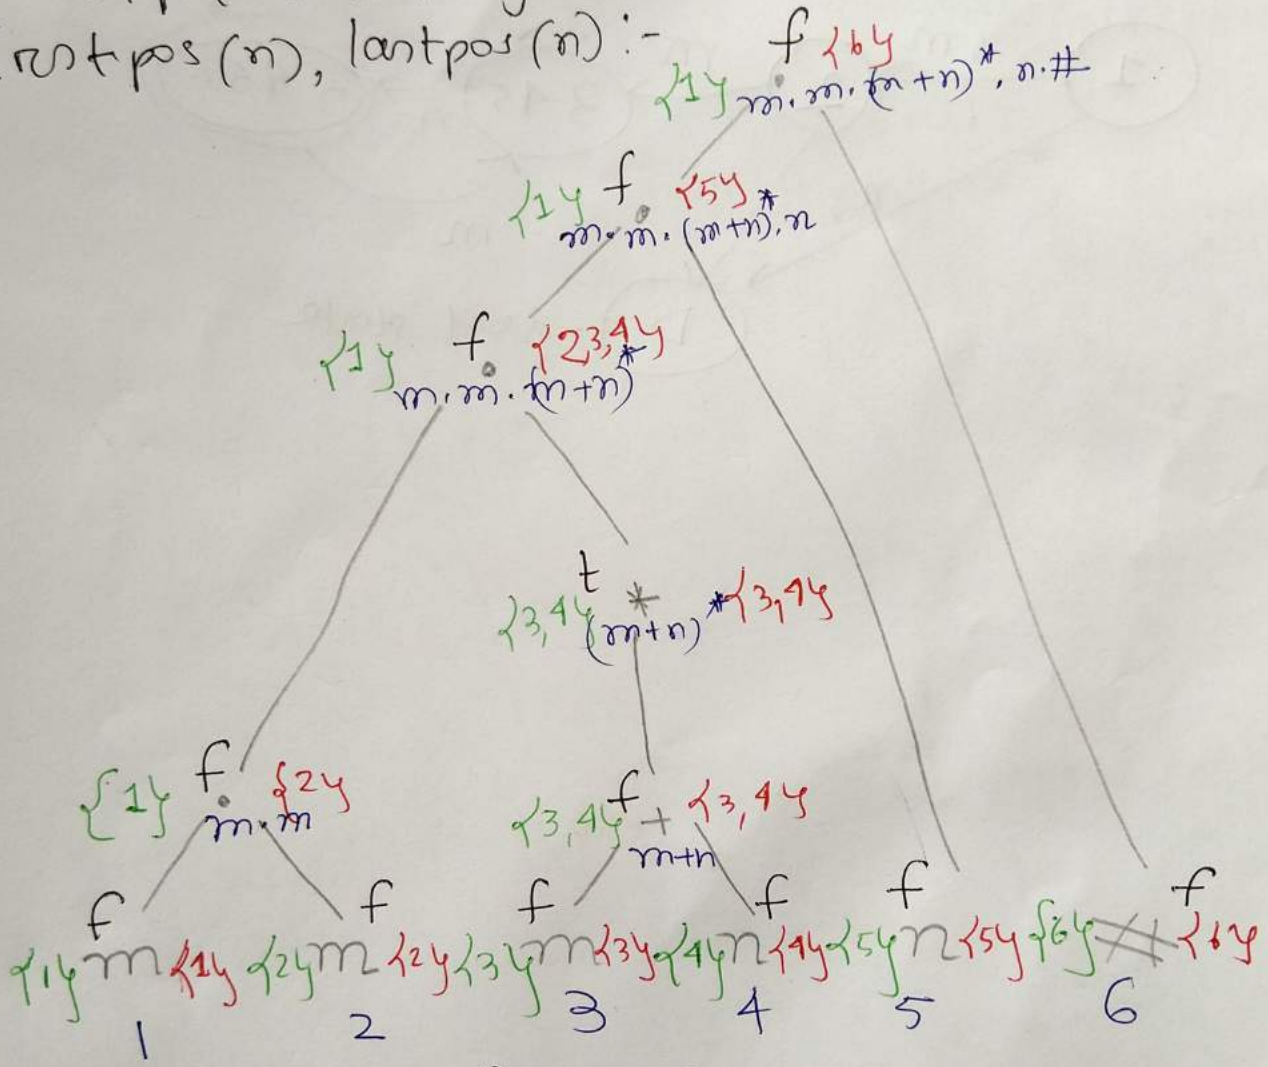 rstpos(n), lastpos(n) :-
f {6}
{1} m.m.(m+n)*.n.#
{1} f {5}
m.m.(m+n)*.n
{1} f {2,3,4}
m.m.(m+n)*
t
{3,4} * {3,4}
(m+n)*
{1} f {2}
m.m
{3,4} f + {3,4}
m+n
f f f f f f
{1} m {1} {2} m {2} {3} m {3} {4} n {4} {5} n {5} {6} # {6}
1 2 3 4 5 6